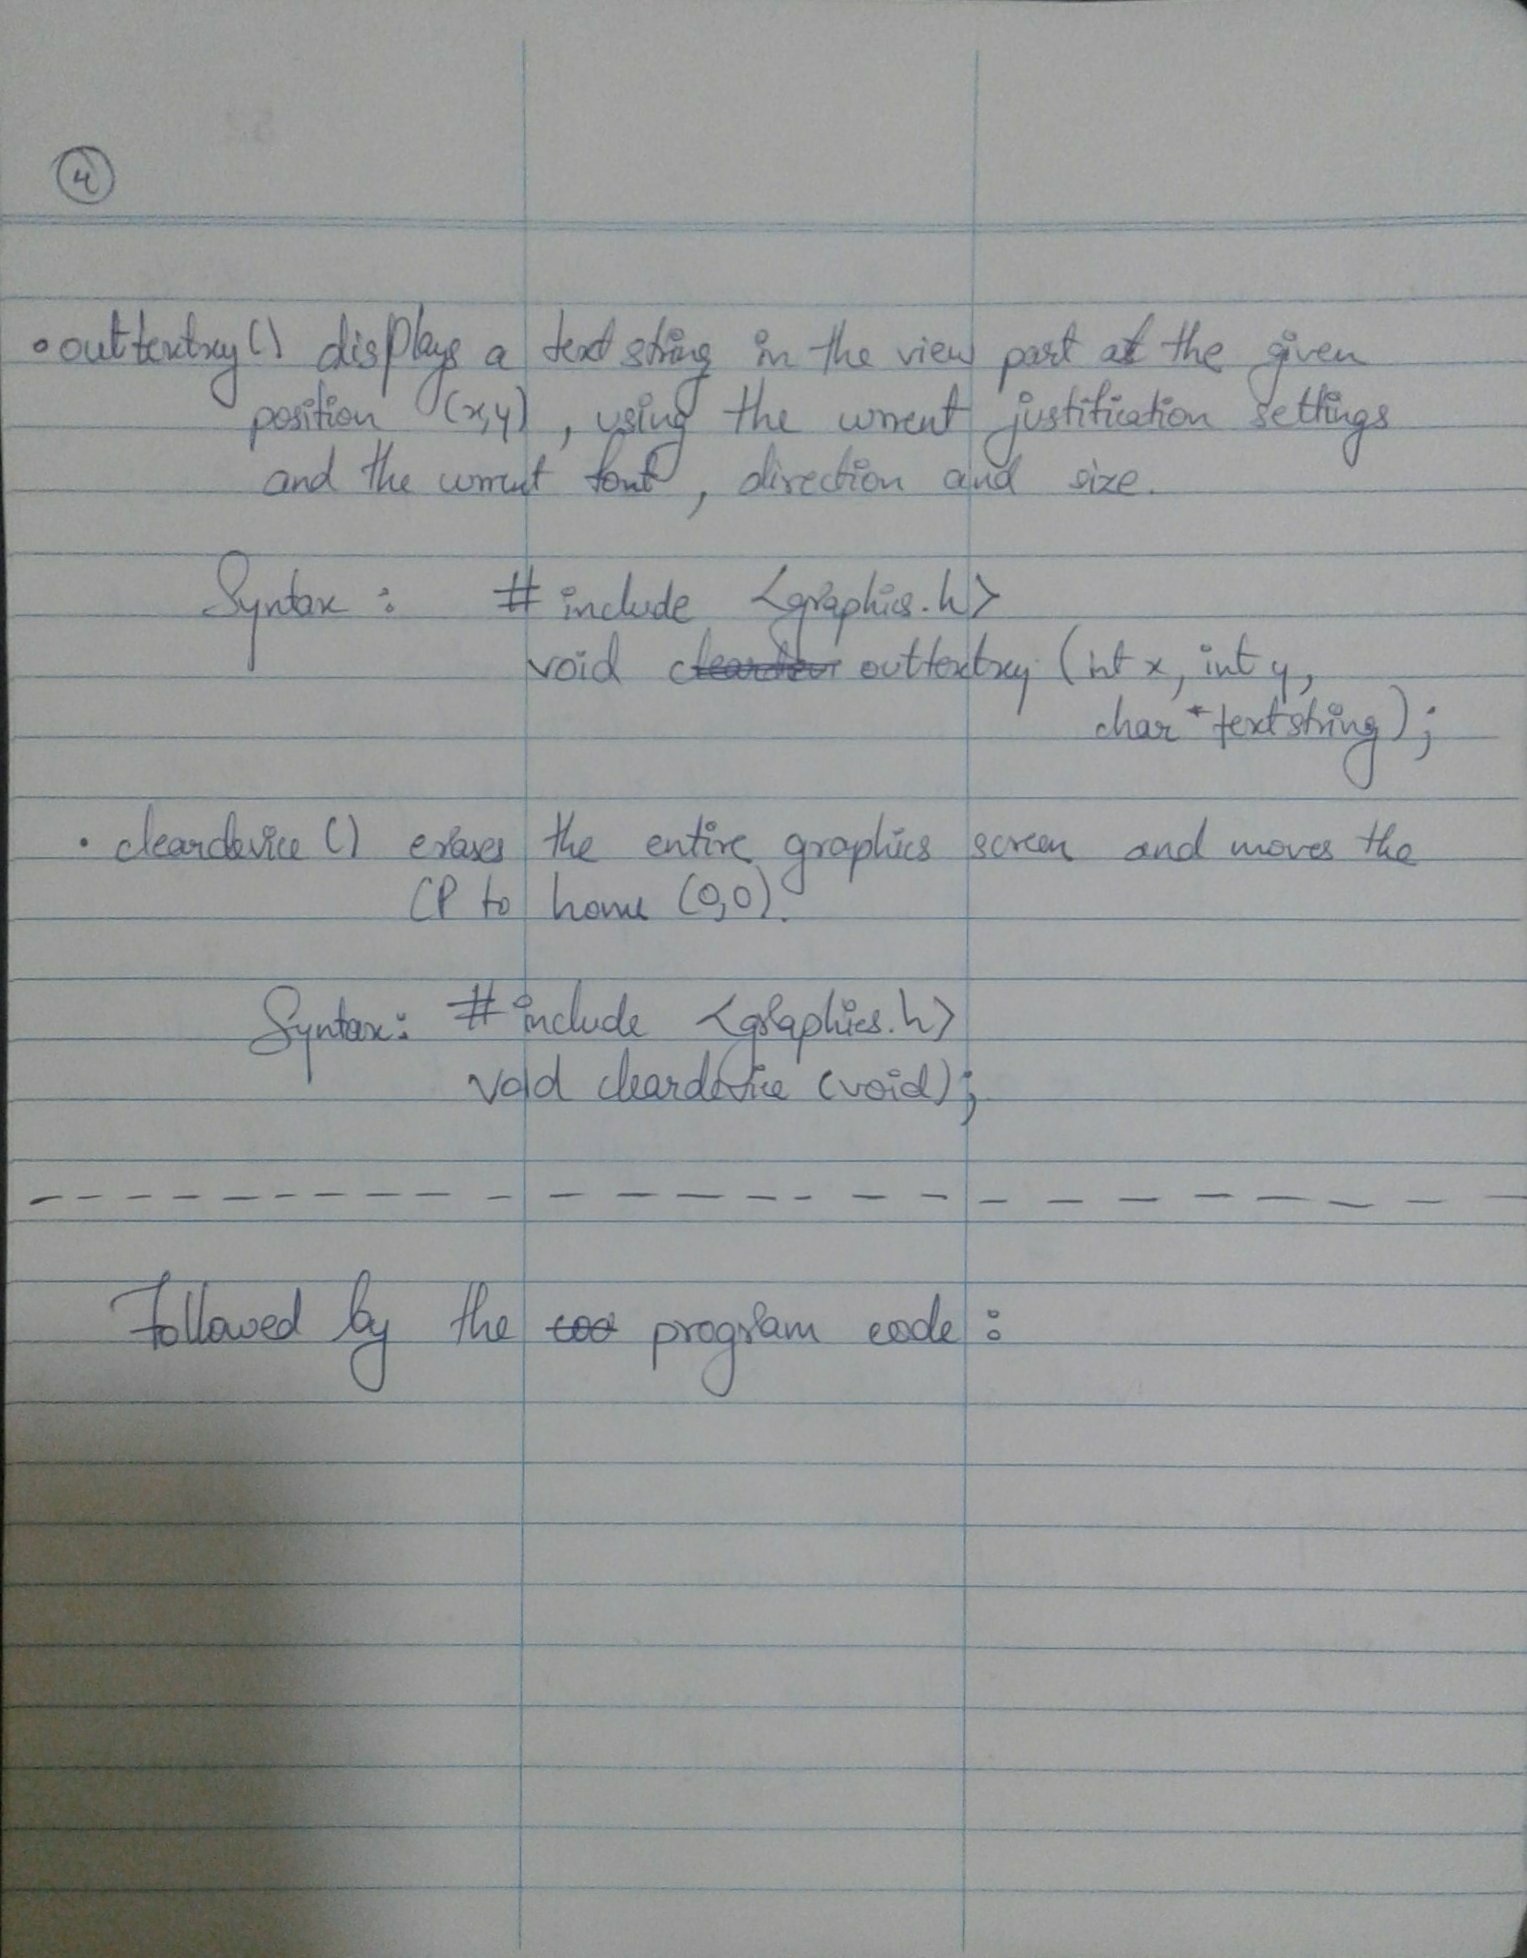 4
• outtextxy() displays a text string in the view part at the given
position (x,y), using the current justification settings
and the current font, direction and size.
Syntax : # include <graphics.h>
void outtextxy (int x, int y,
char * textstring);
• cleardevice () erases the entire graphics screen and moves the
CP to home (0,0).
Syntax: # include <graphics.h>
void cleardevice (void);
Followed by the program code :